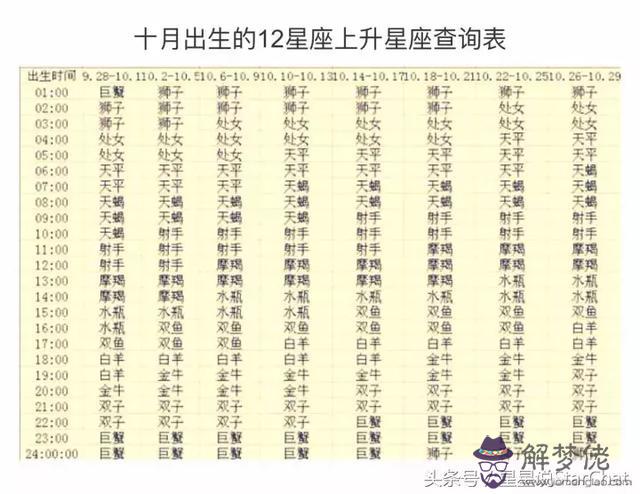 十月出生的12星座上升星座查询表
出生时间 9.28-10.1 10.2-10.5 10.6-10.9 10.10-10.13 10.14-10.17 10.18-10.21 10.22-10.25 10.26-10.29
01:00 巨蟹 狮子 狮子 狮子 狮子 狮子 狮子 狮子
02:00 狮子 狮子 狮子 狮子 狮子 狮子 处女 处女
03:00 狮子 狮子 处女 处女 处女 处女 处女 处女
04:00 处女 处女 处女 处女 处女 处女 天平 天平
05:00 处女 处女 处女 天平 天平 天平 天平 天平
06:00 天平 天平 天平 天平 天平 天平 天平 天蝎
07:00 天平 天平 天平 天蝎 天蝎 天蝎 天蝎 天蝎
08:00 天蝎 天蝎 天蝎 天蝎 天蝎 天蝎 天蝎 天蝎
09:00 天蝎 天蝎 天蝎 天蝎 射手 射手 射手 射手
10:00 天蝎 射手 射手 射手 射手 射手 射手 射手
11:00 射手 射手 射手 射手 射手 摩羯 摩羯 摩羯
12:00 射手 射手 摩羯 摩羯 摩羯 摩羯 摩羯 摩羯
13:00 摩羯 摩羯 摩羯 摩羯 摩羯 摩羯 水瓶 水瓶
14:00 摩羯 摩羯 水瓶 水瓶 水瓶 水瓶 水瓶 水瓶
15:00 水瓶 水瓶 水瓶 水瓶 双鱼 双鱼 双鱼 双鱼
16:00 水瓶 双鱼 双鱼 双鱼 双鱼 双鱼 双鱼 白羊
17:00 双鱼 双鱼 双鱼 白羊 白羊 白羊 白羊 白羊
18:00 白羊 白羊 白羊 白羊 白羊 金牛 金牛 金牛
19:00 白羊 金牛 金牛 金牛 金牛 金牛 金牛 双子
20:00 金牛 金牛 金牛 金牛 双子 双子 双子 双子
21:00 双子 双子 双子 双子 双子 双子 双子 双子
22:00 双子 双子 双子 双子 巨蟹 巨蟹 巨蟹 巨蟹
23:00 巨蟹 巨蟹 巨蟹 巨蟹 巨蟹 巨蟹
24:00:00 巨蟹 巨蟹 巨蟹 巨蟹 巨蟹 狮子
解梦佬
头条号 StarChat
www.jiemenglao.com